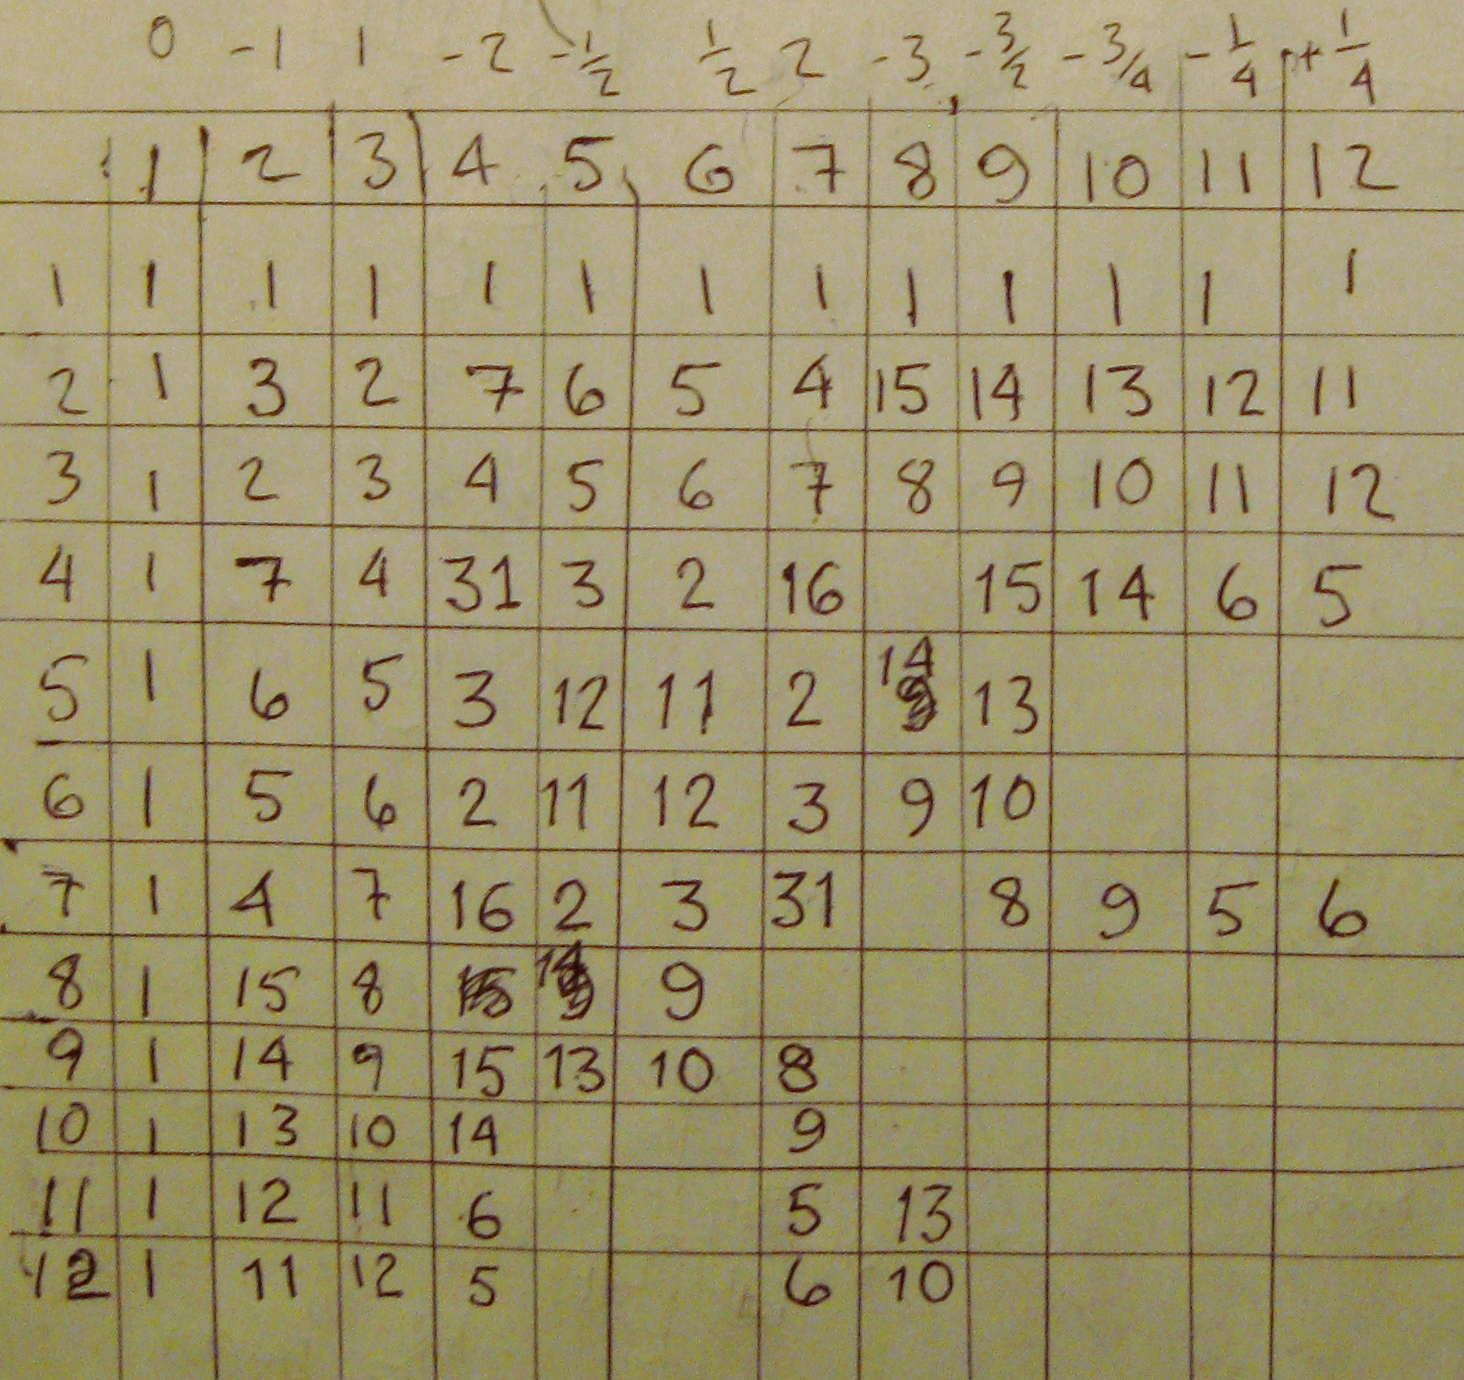 0 -1 1 -2 -1/2 1/2 2 -3 -3/2 -3/4 -1/4 +1/4
1 2 3 4 5 6 7 8 9 10 11 12
1 1 1 1 1 1 1 1 1 1 1 1 1
2 1 3 2 7 6 5 4 15 14 13 12 11
3 1 2 3 4 5 6 7 8 9 10 11 12
4 1 7 4 31 3 2 16 15 14 6 5
5 1 6 5 3 12 11 2 14 13
6 1 5 6 2 11 12 3 9 10
7 1 4 7 16 2 3 31 8 9 5 6
8 1 15 8 14 9
9 1 14 9 15 13 10 8
10 1 13 10 14 9
11 1 12 11 6 5 13
12 1 11 12 5 6 10